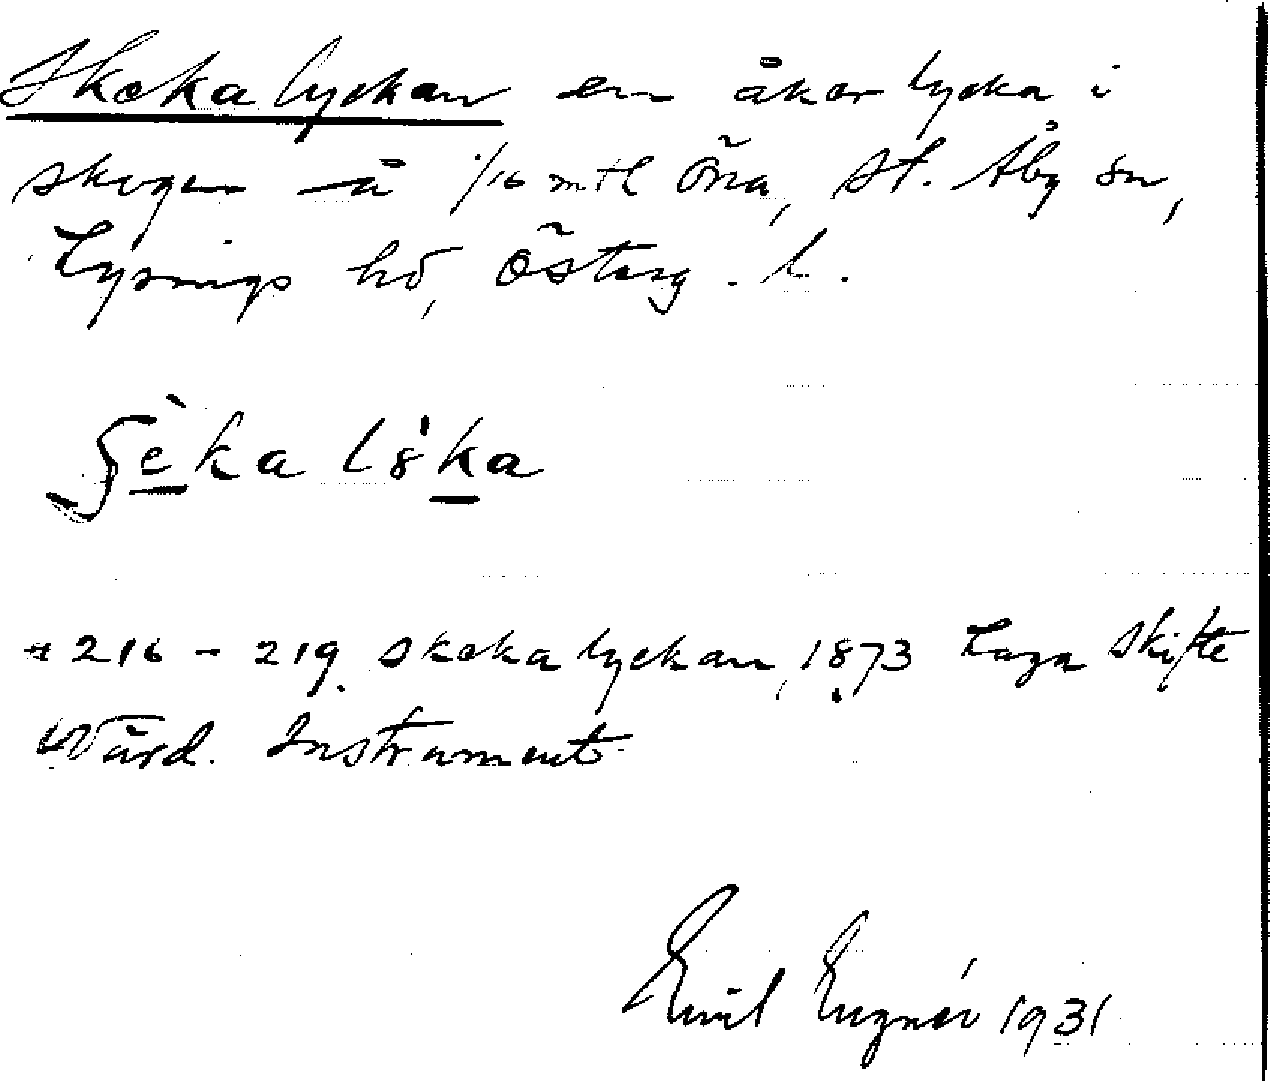 Skekalyckan en åkerlycka i
skogen å 1/16 mtl Öna, St. Åby sn,
Lysings hd, Österg. l.
ʃèka lɞ'ka
# 216 - 219. Skekalyckan, 1873 Laga Skifte
Värd. Instrument
Emil Engnér 1931